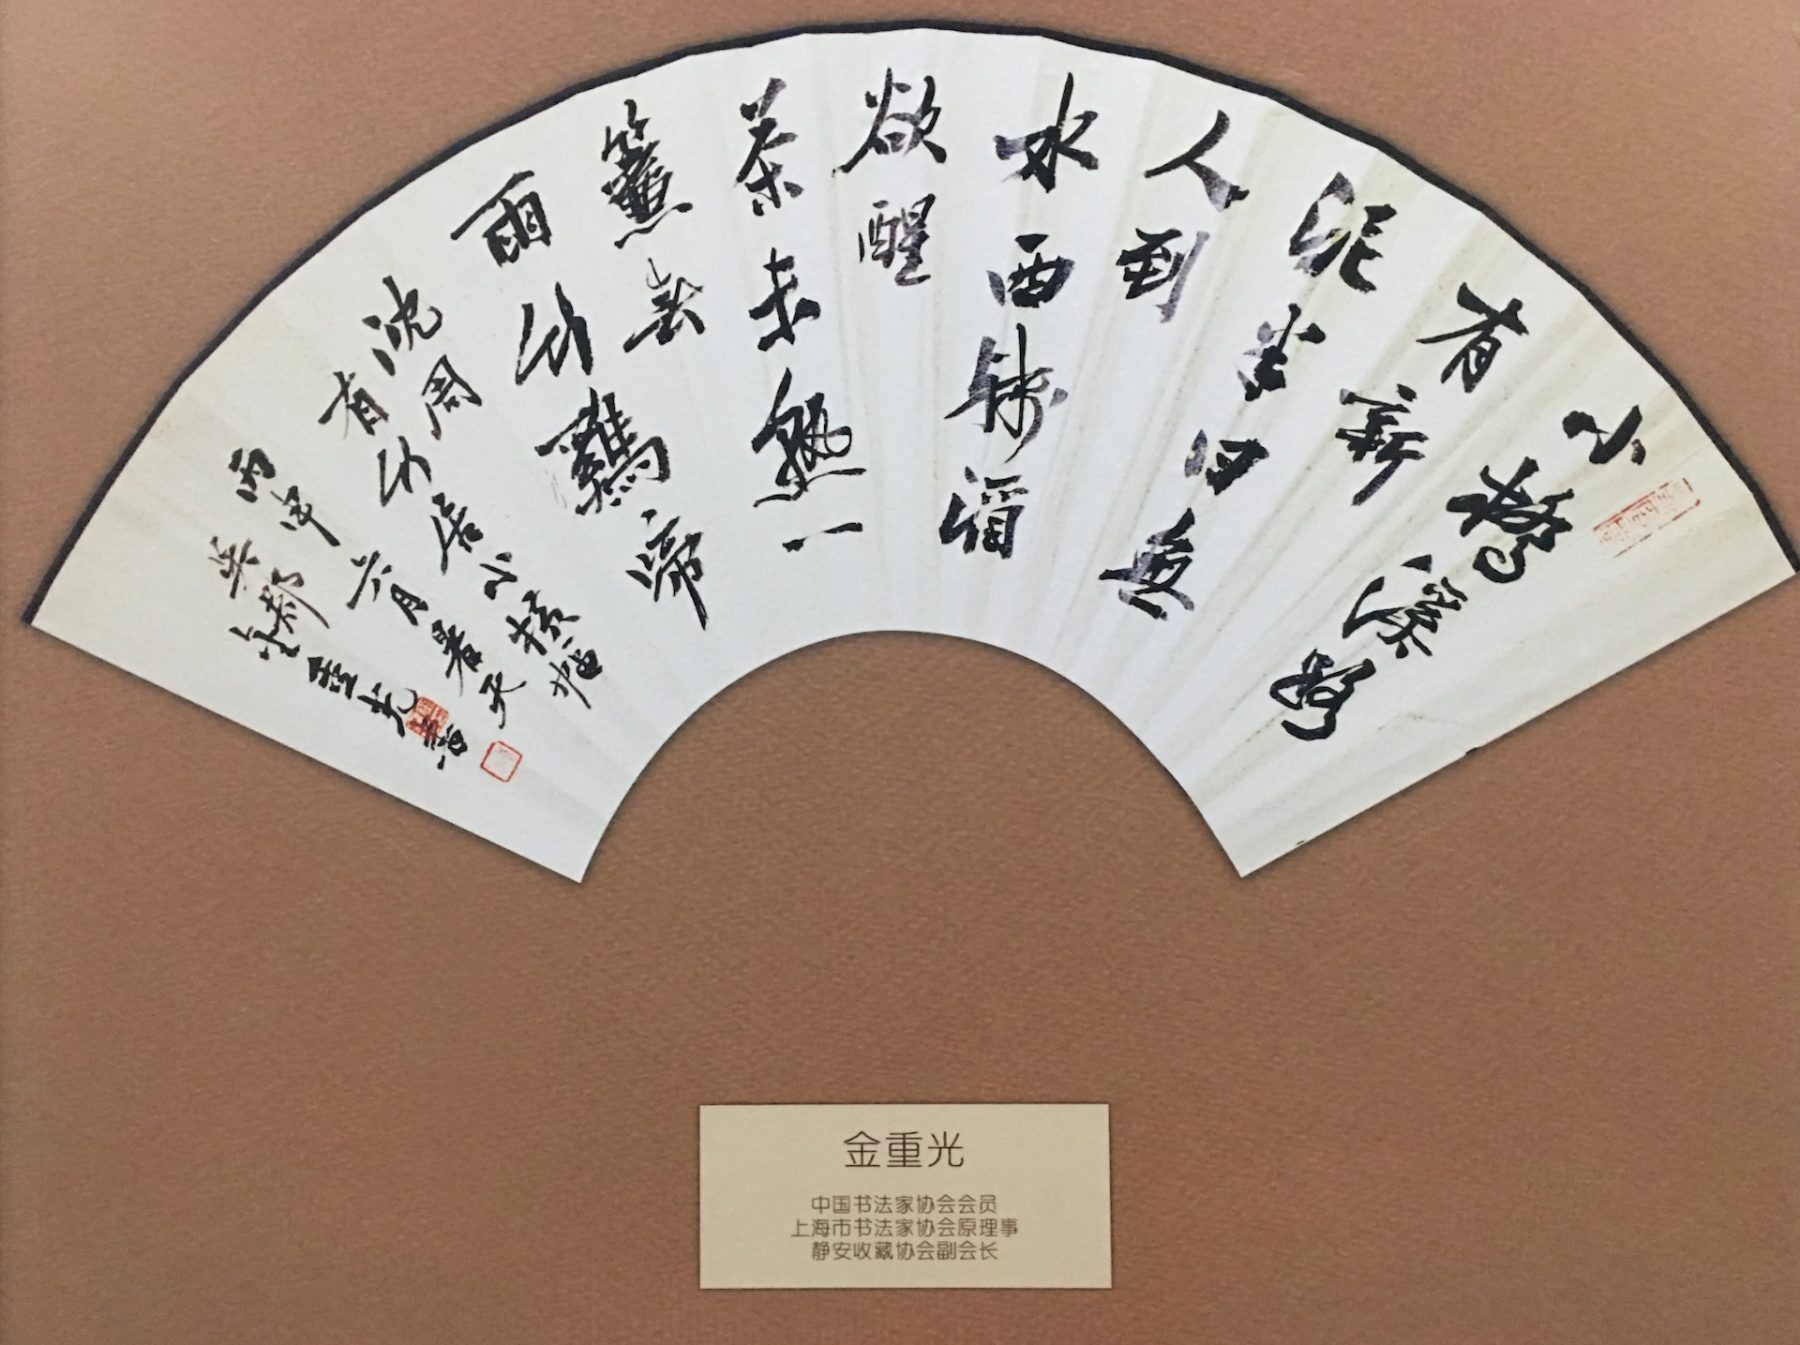 小橋溪路
有新
泥半日無
人到
水西殘酒
欲醒
茶未熟一
簾春
雨竹鷄啼
沈周
有竹居小横幅
丙申六月暑天
吴郡金重光書
金重光
中国书法家协会会员
上海市书法家协会原理事
静安收藏协会副会长